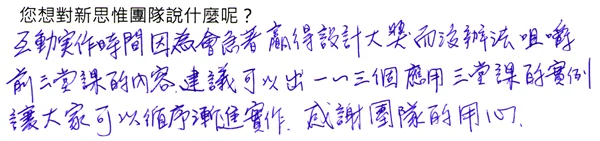 您想對新思惟團隊說什麼呢？
互動實作時間因為會急著贏得設計大獎而沒辦法咀嚼
前三堂課的內容,建議可以出一~三個應用三堂課的實例
讓大家可以循序漸進實作. 感謝團隊的用心.